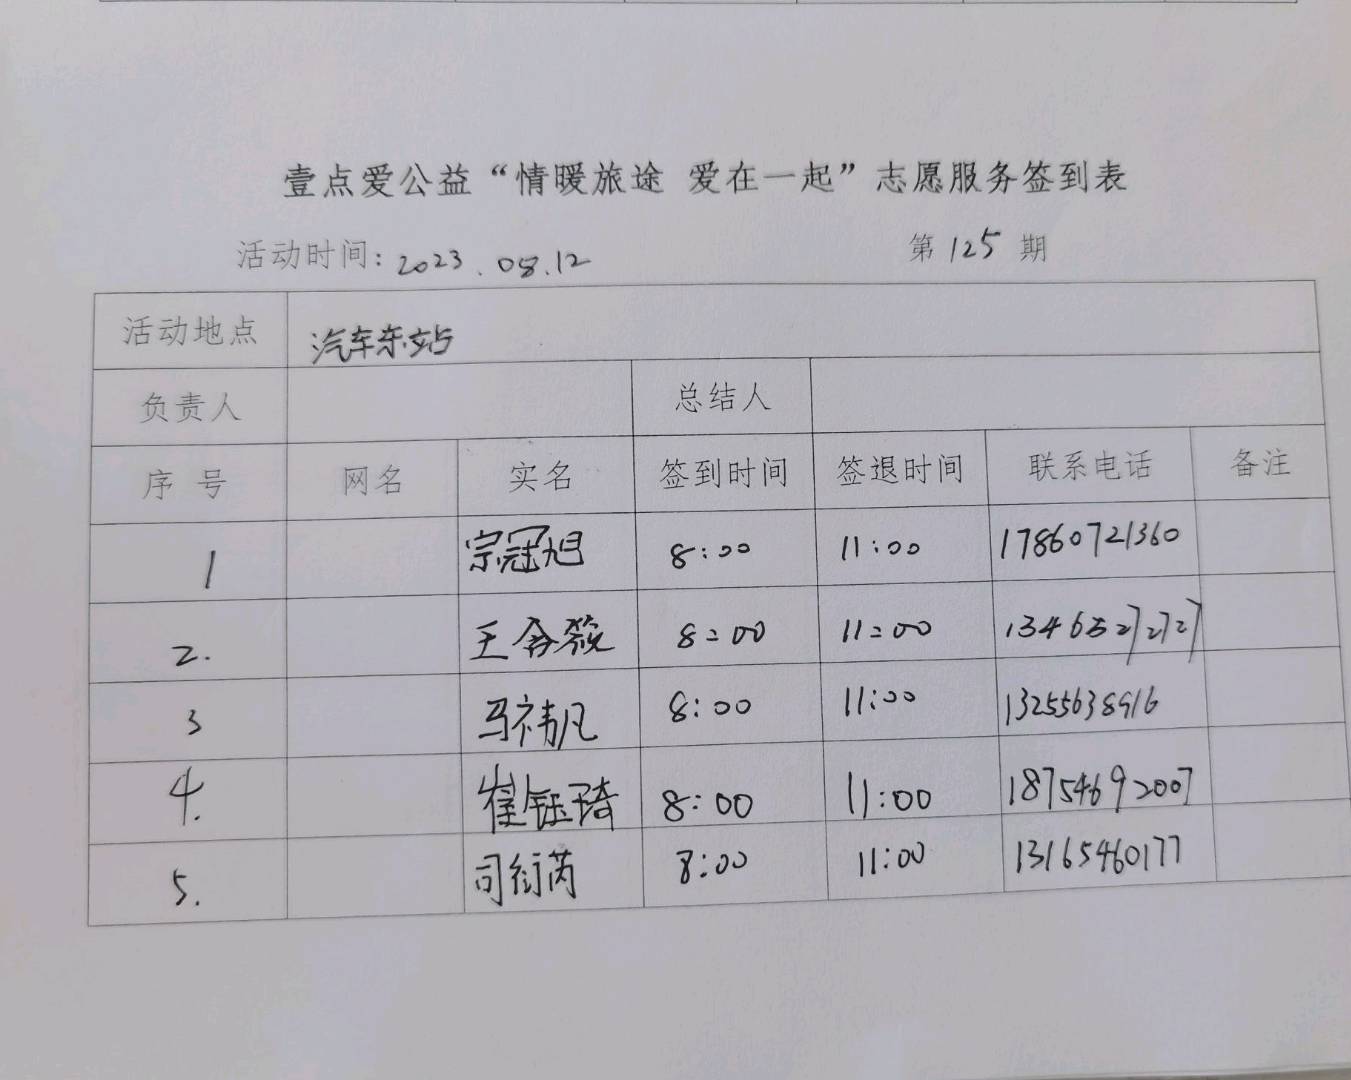 壹点爱公益“情暖旅途 爱在一起”志愿服务签到表
活动时间：2023.08.12 第125期
活动地点 汽车东站
负责人 总结人
序号 网名 实名 签到时间 签退时间 联系电话 备注
1 宗冠旭 8:00 11:00 17860721360
2. 王 8:00 11:00
3 马祎凡 8:00 11:00 13255638916
4. 崔钰琦 8:00 11:00 18754692007
5. 司衍芮 8:00 11:00 13165460177